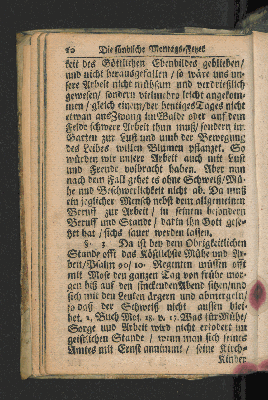 20 Die sündliche Montags-Feyer
keit des Göttlichen Ebenbildes geblieben/
und nicht herausgefallen / so wäre uns un-
sere Arbeit nicht mühsam und verdrießlich
gewesen/ sondern vielmehro leicht angekom-
men / gleich einem/ der heutiges Tages nicht
etwan aus Zwang im Walde oder auf dem
Felde schwere Arbeit thun muß/ sondern im
Garten zur Lust und um der Bewegung
des Leibes willen Blumen pflanzet. So
würden wir unsere Arbeit auch mit Lust
und Freude vollbracht haben. Aber nun
nach dem Fall gehet es ohne Schweiß/ Mü-
he und Beschwerlichkeit nicht ab. Da muß
ein jeglicher Mensch nebst dem allgemeinen
Beruff zur Arbeit / in seinem besondern
Beruff und Stande / darin ihn Gott gese-
tzet hat / sichs sauer werden lassen.
§. 3. Da ist bey dem Obrigkeitlichen
Stande offt das Köstlichste Mühe und Ar-
beit/ Psalm 90/10. Regenten müssen offt
mit Mose den ganzen Tag von frühe mor-
gen biß auf den sinckenden Abend sitzen/ und
sich mit den Leuten ärgern und abmergeln/
so daß der Schweiß nicht aussen blei-
bet. 2. Buch Mos. 18. v. 17. Was für Mühe/
Sorge und Arbeit wird nicht erfodert im
geistlichen Stande / wenn man sich seines
Amtes mit Ernst annimmt / seine Kirch-
Kinder